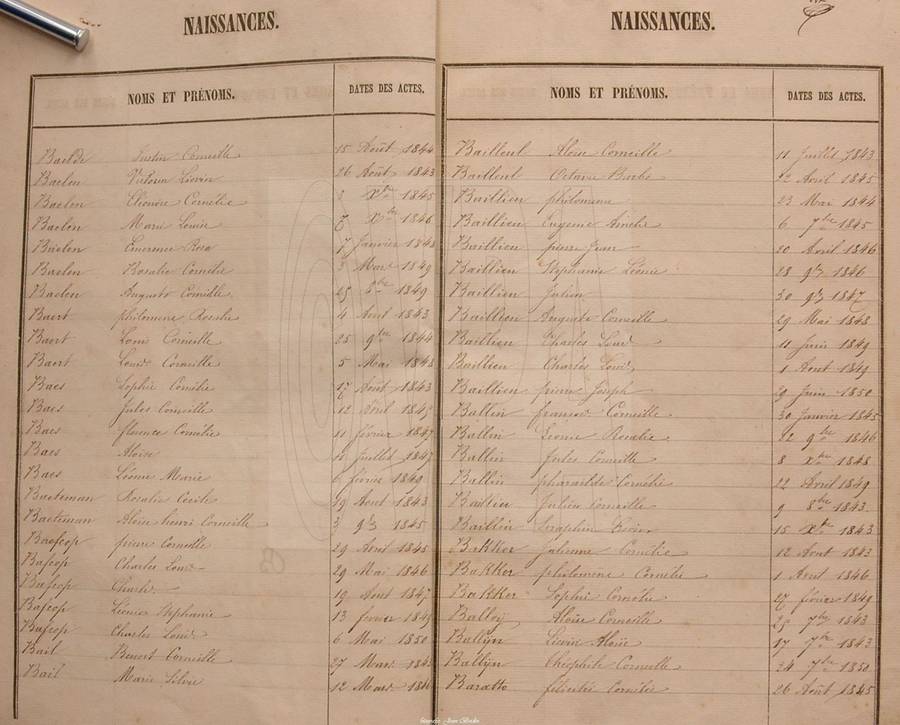 NAISSANCES.
NOMS ET PRÉNOMS. DATES DES ACTES.
Baeldé Justin Corneille 15 Août 1844
Baelen Victoria Livvin 26 Août 1843
Baelen Eléonore Cornélie 3 Xbre 1845
Baelen Marie Louise 7 Xbre 1846
Baelen Rosa 7 Janvier 1848
Baelen Rosalie Cornélie 3 Mars 1849
Baelen Auguste Corneille 25 8bre 1849
Baert philomene Rosalie 4 Aout 1843
Baert Louis Corneille 25 9bre 1844
Baert Louis Corneille 5 Mai 1848
Baes Sophie Cornélie 17 Août 1843
Baes Jules Corneille 12 1845
Baes florence Cornélie 11 février 1847
Baes Aloïse Juillet 1847
Baes Léonie Marie 6 févrie 1849
Baeteman Rosalie Cécile 19 Aout 1843
Baeteman Aloïse henri Corneille 3 9bre 1845
Bafcop pierre Corneille 29 1845
Bafcop Charles Louis 29 Mai 1846
Bafcop Charles 19 Aout 1847
Bafcop Léonie Stéphanie 13 fevrier 1849
Bafcop Charles Louis 6 Mai 1850
Bail Benoit Corneille 27 Mars
Bail Marie Silvie 12 Mars
NAISSANCES.
NOMS ET PRÉNOMS. DATES DES ACTES.
Bailleul Aloïse Corneille 11 Juillet 1843
Bailleul Octavie Barbe 22 Avril 1845
Baillien philomene 23 Mai 1844
Baillien Eugenie Amelie 6 7bre 1845
Baillien pierre Jean 20 Avril 1846
Baillien Stéphanie Léonie 28 9bre 1846
Baillien Julien 30 9bre 1847
Baillien Auguste Corneille 29 Mai 1848
Baillien Charles Louis 11 Juin 1849
Baillien Charles Louis 1 Aout 1849
Baillien pierre Joseph 29 Juin 1850
Ballin francois Corneille 30 Janvier 1845
Ballin Léonie Rosalie 12 9bre 1846
Ballin Jules Corneille 8 Xbre 1848
Ballin pharailde Cornélie 22 Avril 1849
Baillin Julien Corneille 9 8bre 1843
Baillin Séraphin 15 Xbre 1843
Bakker Julienne Cornélie 12 Aout 1843
Bakker philomène Cornélie 1 Avril 1846
Bakker Sophie Cornélie 27 février 1849
Balloÿ Aloïse Corneille 25 7bre 1843
Ballÿn Livvin Aloïse 17 7bre 1843
Ballÿn Théophile Corneille 24 7bre 1850
Baratto félicité Cornélie 26 Août 1845